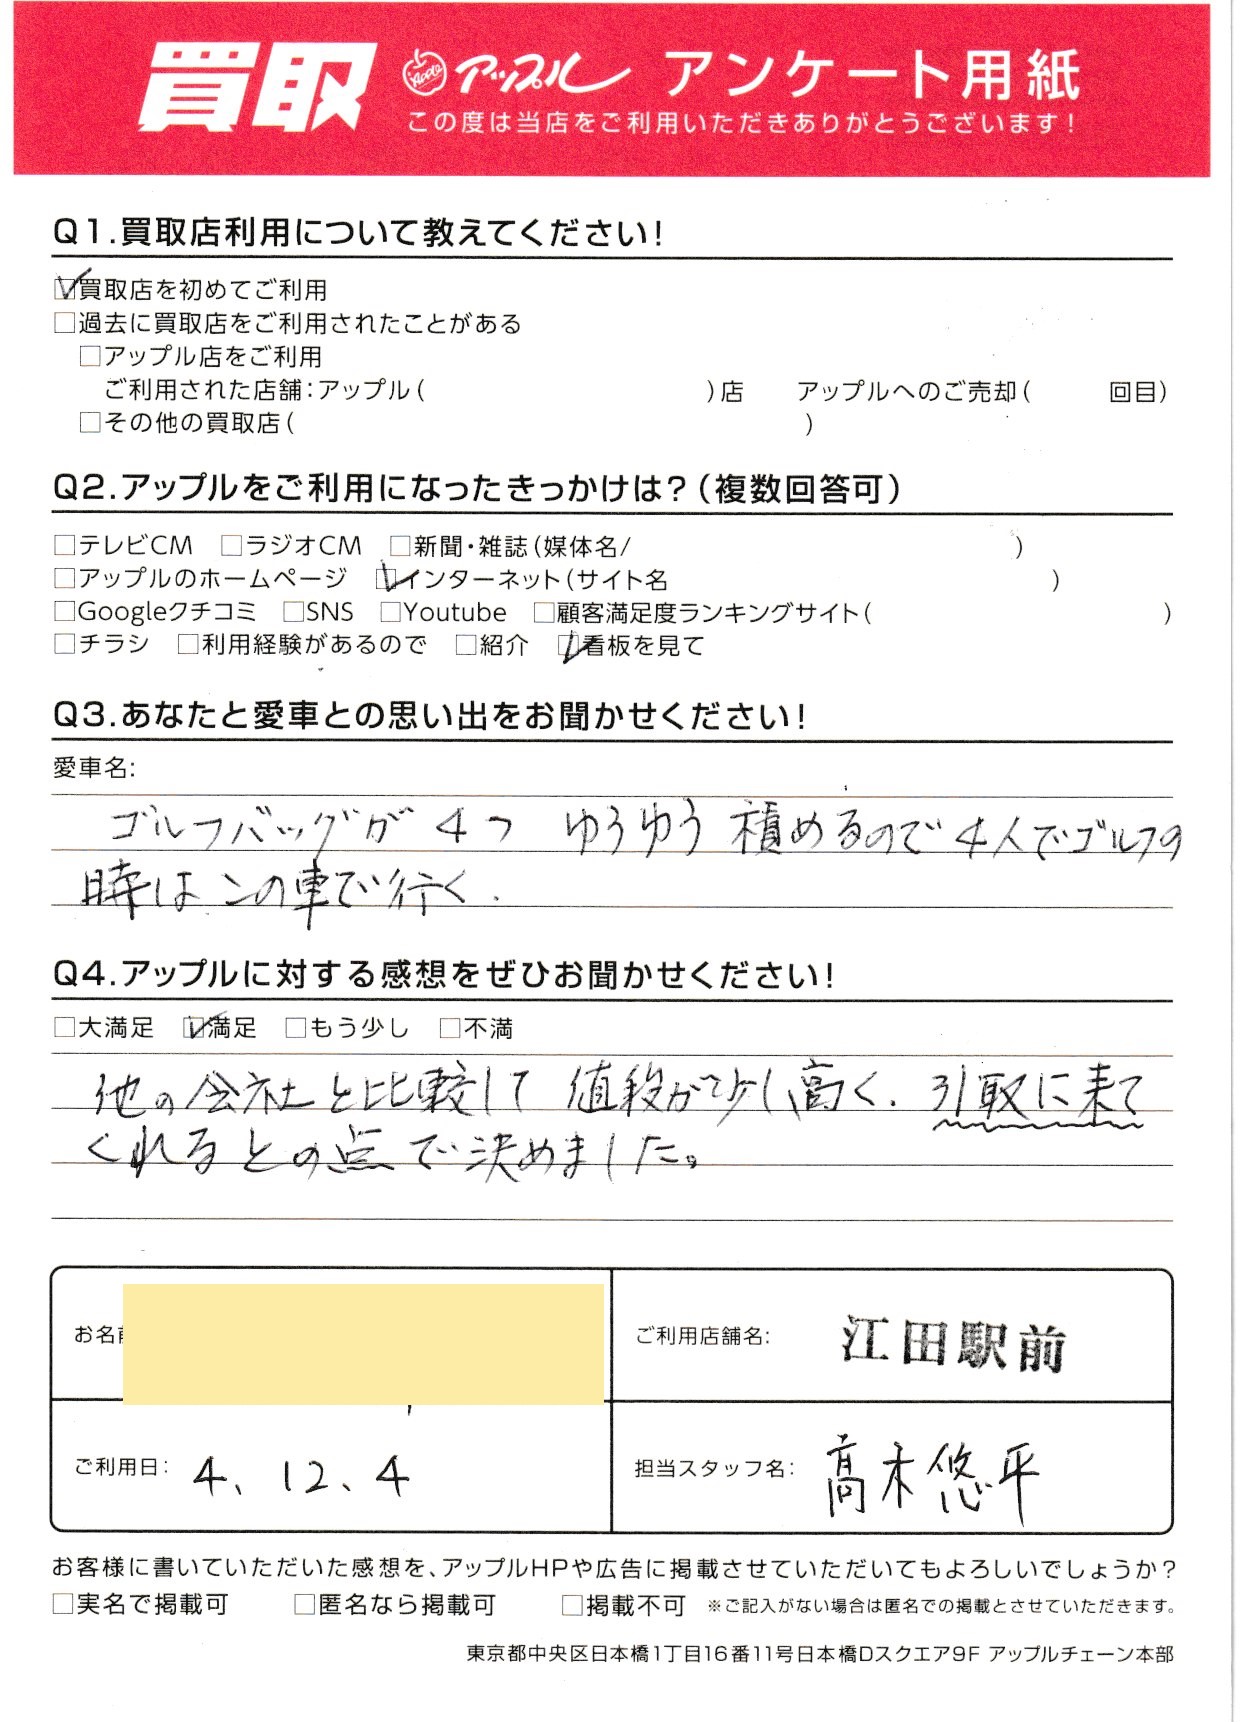 買取 Apple アップル アンケート用紙
この度は当店をご利用いただきありがとうございます！
Q1.買取店利用について教えてください！
☑買取店を初めてご利用
□過去に買取店をご利用されたことがある
□アップル店をご利用
ご利用された店舗：アップル（ ）店 アップルへのご売却（ 回目）
□その他の買取店（ ）
Q2.アップルをご利用になったきっかけは？（複数回答可）
□テレビCM □ラジオCM □新聞・雑誌（媒体名/ ）
□アップルのホームページ ☑インターネット（サイト名 ）
□Googleクチコミ □SNS □Youtube □顧客満足度ランキングサイト（ ）
□チラシ □利用経験があるので □紹介 ☑看板を見て
Q3.あなたと愛車との思い出をお聞かせください！
愛車名：
ゴルフバッグが4つ ゆうゆう積めるので4人でゴルフの
時はこの車で行く.
Q4.アップルに対する感想をぜひお聞かせください！
□大満足 ☑満足 □もう少し □不満
他の会社と比較して 値段が少し高く、引取に来て
くれるとの点で決めました。
お名前 ご利用店舗名： 江田駅前
ご利用日： 4、12、4 担当スタッフ名： 髙木悠平
お客様に書いていただいた感想を、アップルHPや広告に掲載させていただいてもよろしいでしょうか？
□実名で掲載可 □匿名なら掲載可 □掲載不可 ※ご記入がない場合は匿名での掲載とさせていただきます。
東京都中央区日本橋1丁目16番11号日本橋Dスクエア9F アップルチェーン本部